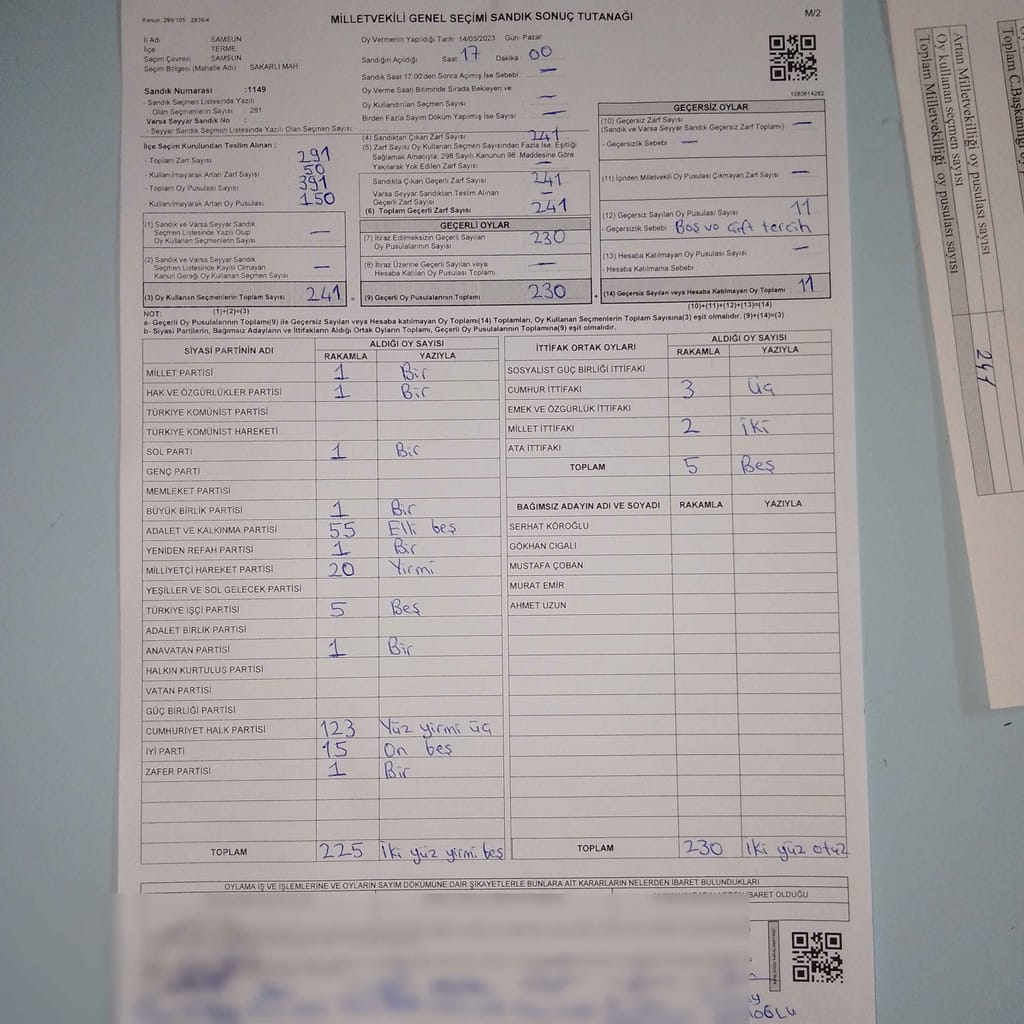 Kanun: 298/105 2839/4
MİLLETVEKİLİ GENEL SEÇİMİ SANDIK SONUÇ TUTANAĞI
M/2
İl Adı SAMSUN
İlçe TERME
Seçim Çevresi SAMSUN
Seçim Bölgesi (Mahalle Adı) SAKARLI MAH
Sandık Numarası :1149
- Sandık Seçmen Listesinde Yazılı
Olan Seçmenlerin Sayısı : 281
Varsa Seyyar Sandık No :
- Seyyar Sandık Seçmen Listesinde Yazılı Olan Seçmen Sayısı
İlçe Seçim Kurulundan Teslim Alınan :
- Toplam Zarf Sayısı 291
- Kullanılmayarak Artan Zarf Sayısı 50
- Toplam Oy Pusulası Sayısı 391
- Kullanılmayarak Artan Oy Pusulası 150
(1) Sandık ve Varsa Seyyar Sandık
Seçmen Listesinde Yazılı Olup
Oy Kullanan Seçmenlerin Sayısı —
(2) Sandık ve Varsa Seyyar Sandık
Seçmen Listesinde Kayıtlı Olmayan
Kanun Gereği Oy Kullanan Seçmen Sayısı —
(3) Oy Kullanan Seçmenlerin Toplam Sayısı 241 =
(1)+(2)=(3)
Oy Vermenin Yapıldığı Tarih :14/05/2023 Gün: Pazar
Sandığın Açıldığı Saat 17 Dakika 00
Sandık Saat 17:00'den Sonra Açımış İse Sebebi —
Oy Verme Saati Bitiminde Sırada Bekleyen ve
Oy Kullandırılan Seçmen Sayısı —
Birden Fazla Sayım Döküm Yapılmış İse Sayısı —
(4) Sandıktan Çıkan Zarf Sayısı 241
(5) Zarf Sayısı Oy Kullanan Seçmen Sayısından Fazla İse, Eşitliği
Sağlamak Amacıyla, 298 Sayılı Kanunun 98. Maddesine Göre
Yakılarak Yok Edilen Zarf Sayısı —
Sandıkta Çıkan Geçerli Zarf Sayısı 241
Varsa Seyyar Sandıktan Teslim Alınan
Geçerli Zarf Sayısı —
(6) Toplam Geçerli Zarf Sayısı 241
GEÇERLİ OYLAR
(7) İtiraz Edilmeksizin Geçerli Sayılan
Oy Pusulalarının Sayısı 230
(8) İtiraz Üzerine Geçerli Sayılan veya
Hesaba Katılan Oy Pusulası Toplamı —
(9) Geçerli Oy Pusulalarının Toplamı 230 +
1083614282
GEÇERSİZ OYLAR
(10) Geçersiz Zarf Sayısı
(Sandık ve Varsa Seyyar Sandık Geçersiz Zarf Toplamı) —
- Geçersizlik Sebebi —
(11) İçinden Milletvekili Oy Pusulası Çıkmayan Zarf Sayısı —
(12) Geçersiz Sayılan Oy Pusulası Sayısı 11
- Geçersizlik Sebebi Boş ve Çift tercih
(13) Hesaba Katılmayan Oy Pusulası Sayısı —
- Hesaba Katılmama Sebebi
(14) Geçersiz Sayılan veya Hesaba Katılmayan Oy Toplamı 11
(10)+(11)+(12)+(13)=(14)
NOT:
a- Geçerli Oy Pusulaları Toplamı(9) ile Geçersiz Sayılan veya Hesaba katılmayan Oy Toplamı(14) Toplamları, Oy Kullanan Seçmenlerin Toplam Sayısına(3) eşit olmalıdır. (9)+(14)=(3)
b- Siyasi Partilerin, Bağımsız Adayların ve İttifakların Aldığı Ortak Oyların Toplamı, Geçerli Oy Pusulalarının Toplamına(9) eşit olmalıdır.
SİYASİ PARTİNİN ADI ALDIĞI OY SAYISI
RAKAMLA YAZIYLA
MİLLET PARTİSİ 1 Bir
HAK VE ÖZGÜRLÜKLER PARTİSİ 1 Bir
TÜRKİYE KOMÜNİST PARTİSİ
TÜRKİYE KOMÜNİST HAREKETİ
SOL PARTİ 1 Bir
GENÇ PARTİ
MEMLEKET PARTİSİ
BÜYÜK BİRLİK PARTİSİ 1 Bir
ADALET VE KALKINMA PARTİSİ 55 Elli beş
YENİDEN REFAH PARTİSİ 1 Bir
MİLLİYETÇİ HAREKET PARTİSİ 20 Yirmi
YEŞİLLER VE SOL GELECEK PARTİSİ
TÜRKİYE İŞÇİ PARTİSİ 5 Beş
ADALET BİRLİK PARTİSİ
ANAVATAN PARTİSİ 1 Bir
HALKIN KURTULUŞ PARTİSİ
VATAN PARTİSİ
GÜÇ BİRLİĞİ PARTİSİ
CUMHURİYET HALK PARTİSİ 123 Yüz yirmi üç
İYİ PARTİ 15 On beş
ZAFER PARTİSİ 1 Bir
TOPLAM 225 İki yüz yirmi beş
İTTİFAK ORTAK OYLARI ALDIĞI OY SAYISI
RAKAMLA YAZIYLA
SOSYALİST GÜÇ BİRLİĞİ İTTİFAKI
CUMHUR İTTİFAKI 3 üç
EMEK VE ÖZGÜRLÜK İTTİFAKI
MİLLET İTTİFAKI 2 iki
ATA İTTİFAKI
TOPLAM 5 Beş
BAĞIMSIZ ADAYIN ADI VE SOYADI RAKAMLA YAZIYLA
SERHAT KÖROĞLU
GÖKHAN CIGALI
MUSTAFA ÇOBAN
MURAT EMİR
AHMET UZUN
TOPLAM 230 İki yüz otuz
OYLAMA İŞ VE İŞLEMLERİNE VE OYLARIN SAYIM DÖKÜMÜNE DAİR ŞİKAYETLERLE BUNLARA AİT KARARLARIN NELERDEN İBARET BULUNDUKLARI
İBARET OLDUĞU
Artan Milletvekilliği oy pusulası sayısı
Oy kullanan seçmen sayısı 241
Toplam Milletvekilliği oy pusulası sayısı